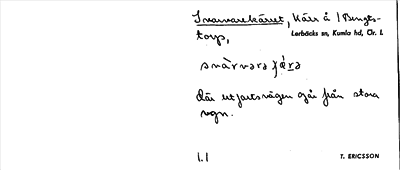 Snarvarekärret, Kärr å 1 Bengts-
torp,
Lerbäcks sn, Kumla hd, Ör. l.
Där utfartsvägen går från stora
vgn.
1.1
T. ERICSSON